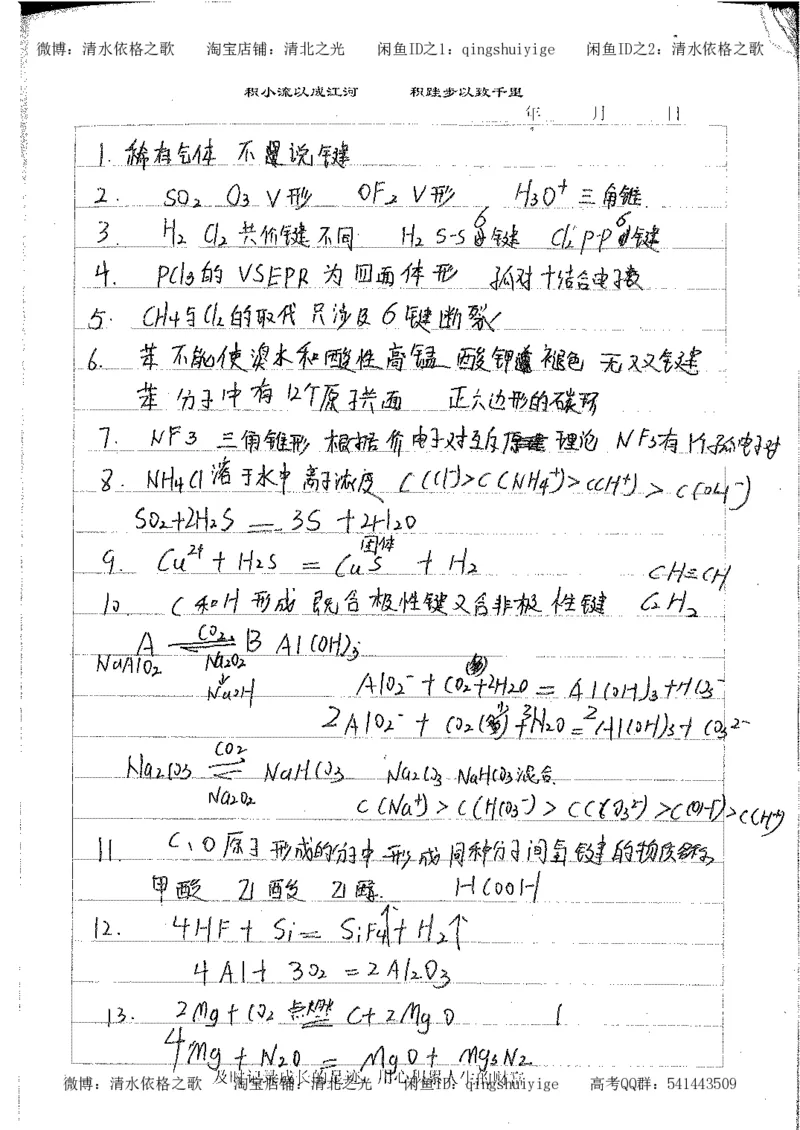 微博：清水依格之歌 淘宝店铺：清北之光 闲鱼ID之1：qingshuiyige 闲鱼ID之2：清水依格之歌
积小流以成江河 积跬步以致千里
年 月 日
1. 稀有气体 不是说键
2. SO₂ O₃ V形 OF₂ V形 H₃O⁺ 三角锥
3. H₂ Cl₂ 共价键不同 H₂ S-S 6键 Cl₂ P-P 6键
4. PCl₃的 VSEPR 为四面体形 孤对+结合电子数
5. CH₄与Cl₂的取代只涉及6键断裂
6. 苯不能使溴水和酸性高锰酸钾褪色 无双键
苯分子中有12个原子共面 正六边形的碳环
7. NF₃ 三角锥形 根据价电子对互斥理论 NF₃有1个孤电子对
8. NH₄Cl溶于水中离子浓度 C(Cl⁻)>C(NH₄⁺)>C(H⁺)>C(OH⁻)
SO₂+2H₂S = 3S + 2H₂O
固体
9. Cu²⁺ + H₂S = CuS + H₂
CH≡CH
10. C和H形成既含极性键又含非极性键 C₂H₂
A ⇌ B Al(OH)₃ CO₂
NaAlO₂ Na₂O₂
↓
NaOH AlO₂⁻ + CO₂+2H₂O = Al(OH)₃+HCO₃⁻
2AlO₂⁻ + CO₂(少)+3H₂O = 2Al(OH)₃+ CO₃²⁻
CO₂
Na₂CO₃ ⇌ NaHCO₃ Na₂CO₃ NaHCO₃混合
Na₂O₂ C(Na⁺)>C(HCO₃⁻)>C(CO₃²⁻)>C(OH⁻)>C(H⁺)
11. C、O原子形成的分子中形成同种分子间氢键的物质名称
甲酸 乙酸 乙醇 HCOOH
12. 4HF + Si = SiF₄↑+ H₂↑
4Al + 3O₂ = 2Al₂O₃
13. 2Mg + CO₂ 点燃= C+2MgO
4Mg + N₂O = MgO + Mg₃N₂
及时记录成长的足迹，用心积累人生的财富
微博：清水依格之歌 淘宝店铺：清北之光 闲鱼ID：qingshuiyige 高考QQ群：541443509